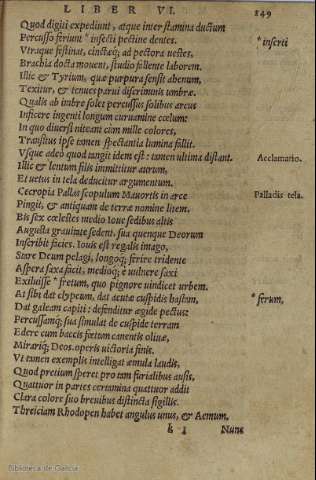 LIBER VI.
149
Quod digiti expediunt, atque inter stamina ductum
Percusso feriunt * insecti pectine dentes.
* inserti
Vtraque festinat, cinctæq; ad pectora vestes,
Brachia docta mouent, studio fallente laborem.
Illic & Tyrium, quæ purpura sensit ahenum,
Texitur, & tenues parui discriminis vmbræ.
Qualis ab imbre solet percussus solibus arcus
Inficere ingenti longum curuamine cœlum:
In quo diuersi niteant cùm mille colores,
Transitus ipse tamen spectantia lumina fallit.
Vsque adeo quod tangit idem est: tamen vltima distant.
Acclamatio.
Illic & lentum filis immittitur aurum,
Et vetus in tela deducitur argumentum.
Cecropia Pallas scopulum Mauortis in arce
Palladis tela.
Pingit, & antiquam de terræ nomine litem.
Bis sex cœlestes medio Ioue sedibus altis
Augusta grauitate sedent. sua quenque Deorum
Inscribit facies. Iouis est regalis imago,
Stare Deum pelagi, longoq; ferire tridente
Aspera saxa facit, medioq; è vulnere saxi
Exiluisse * fretum, quo pignore vindicet vrbem.
* ferum,
At sibi dat clypeum, dat acutæ cuspidis hastam,
Dat galeam capiti: defenditur ægide pectus:
Percussamq; sua simulat de cuspide terram
Edere cum baccis fœtum canentis oliuæ,
Mirariq; Deos. operis victoria finis.
Vt tamen exemplis intelligat æmula laudis,
Quod pretium speret pro tam furialibus ausis,
Quattuor in partes certamina quattuor addit
Clara colore suo breuibus distincta sigillis.
Threiciam Rhodopen habet angulus vnus, & Aemum,
k 1
Nunc
Biblioteca de Galicia